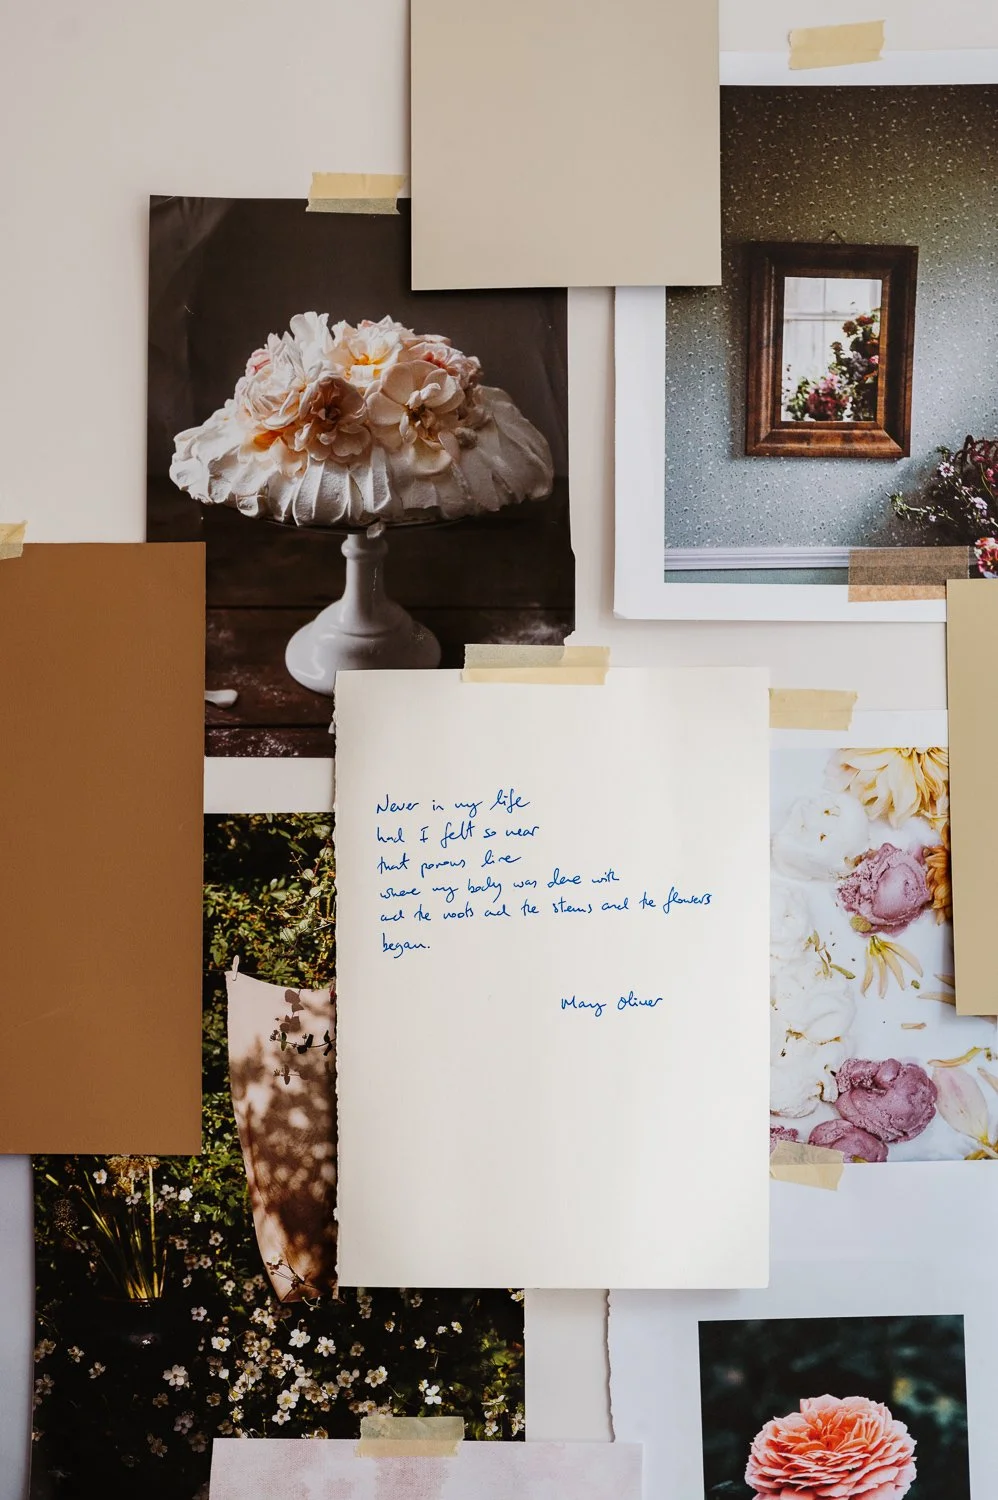 Never in my life
had I felt so near
that porous line
where my body was done with
and the roots and the stems and the flowers
began.
Mary Oliver